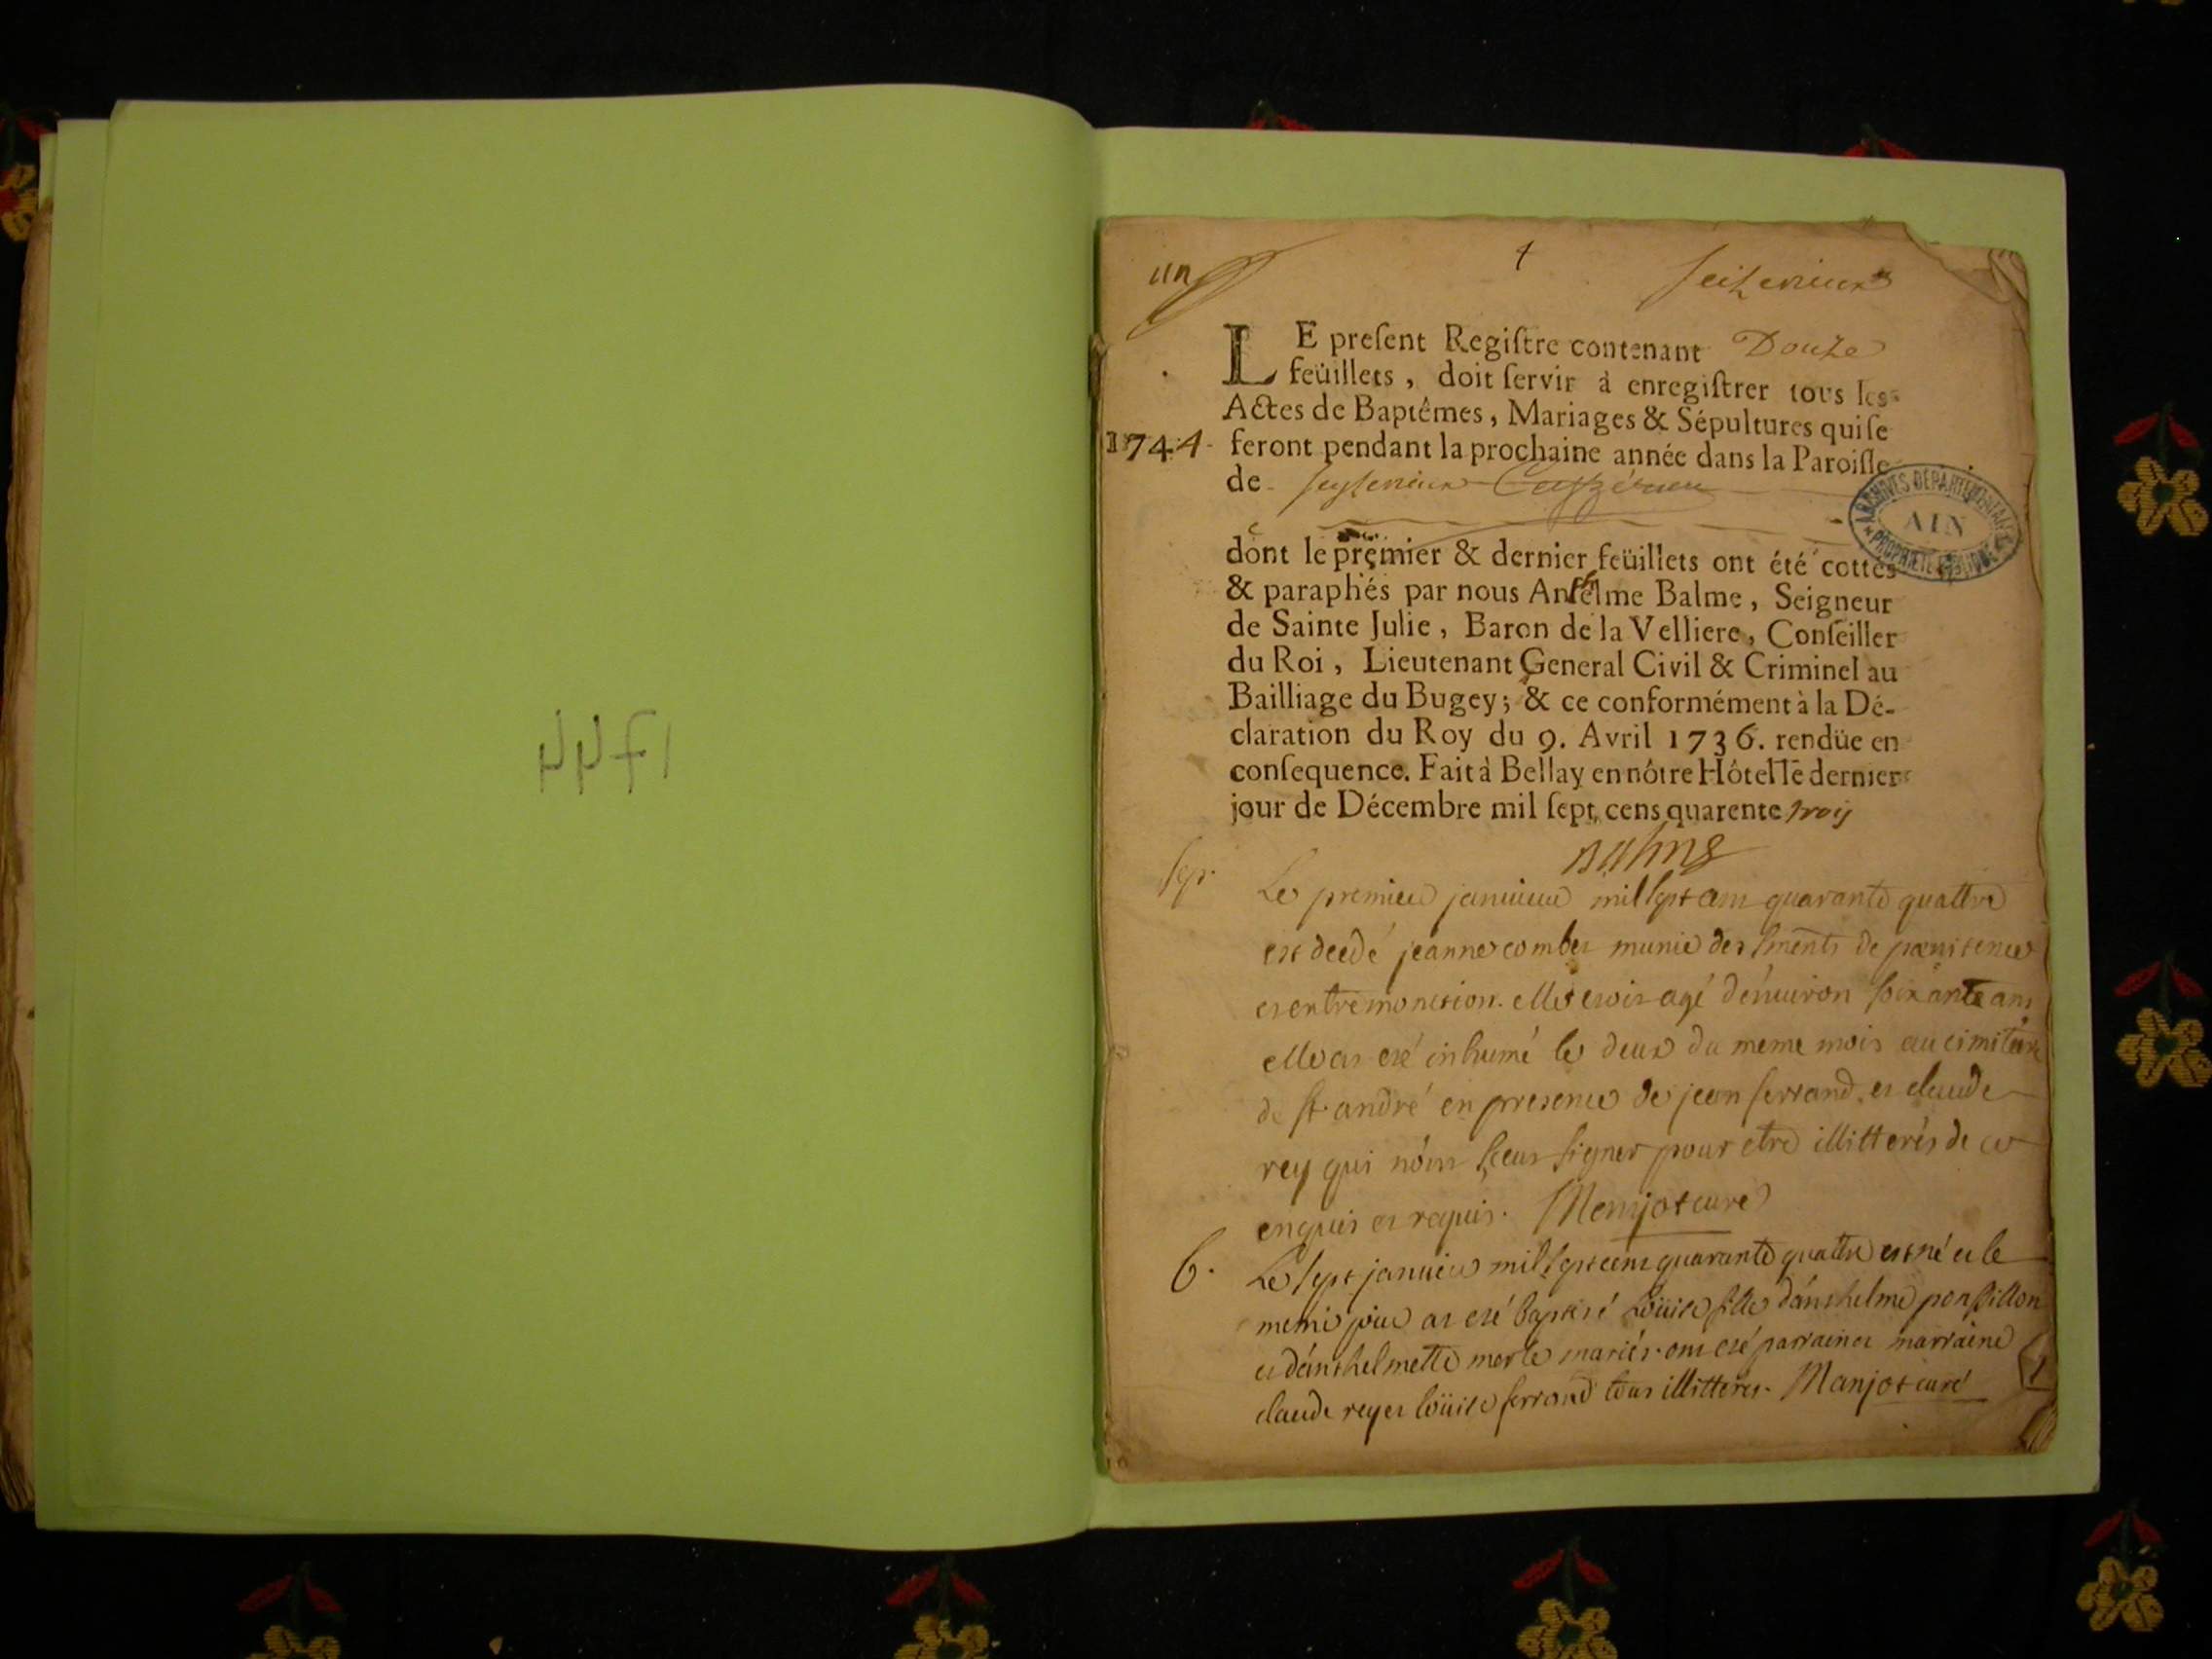 1744
un
1
seizerieux
LE preſent Regiſtre contenant Douze
feüillets, doit ſervir à enregiſtrer tous les
Actes de Baptêmes, Mariages & Sépultures qui ſe
1744 feront pendant la prochaine année dans la Paroiſſe
de
ARCHIVES DÉPARTEMENTALES
AIN
PROPRIÉTÉ PUBLIQUE
dont le premier & dernier feüillets ont été cottés
& paraphés par nous Anthelme Balme, Seigneur
de Sainte Julie, Baron de la Velliere, Conſeiller
du Roi, Lieutenant General Civil & Criminel au
Bailliage du Bugey; & ce conformément à la Dé-
claration du Roy du 9. Avril 1736. rendüe en
conſequence. Fait à Bellay en nôtre Hôtel le dernier
jour de Décembre mil ſept cens quarente trois
Balme
Sep. Le premier janvier mil sept cent quarante quattre
est decdé jeanne comber munie des sments de pœnitence
et extremonction. elle etoit agé d'environ soixante ans
elle at eté inhumé le deux du meme mois au cimitiere
de st. andré en presence de jean ferrand et claude
rey qui n'ont sceus signer pour etre illitterés de ce
enquis et requis. Monjot curé
b. Le sept janvier mil sept cent quarante quattre est né et le
meme jour at eté baptisé Loüise fille d'anthelme ponsillon
et d'anthelmette merle mariés. ont eté parrain et marraine
claude rey et loüise ferrand tous illitteres. Monjot curé
1